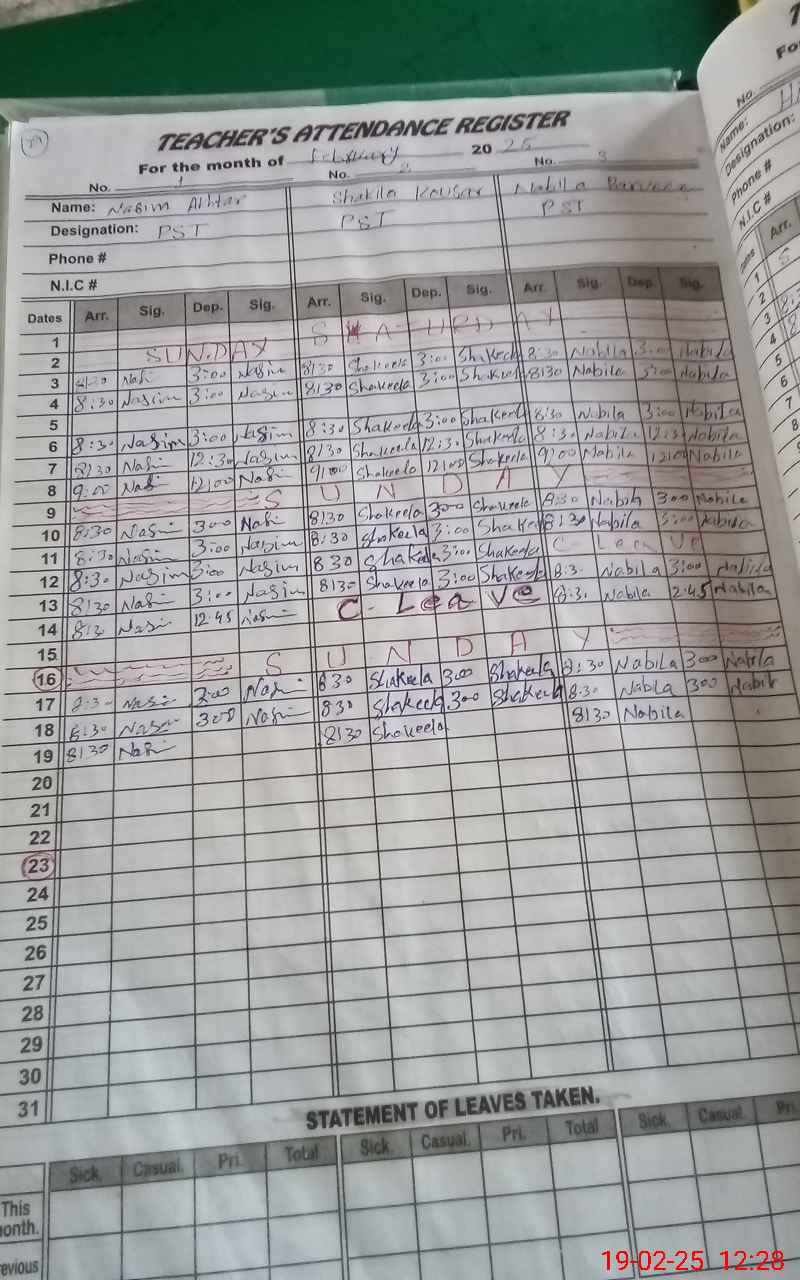 TEACHER'S ATTENDANCE REGISTER
For the month of February 2025
No. 1 No. 2 No. 3
Name: Nasim Akhtar Shakila Kousar Nabila Parveen
Designation: PST PST PST
Phone #
N.I.C #
Dates Arr. Sig. Dep. Sig. Arr. Sig. Dep. Sig. Arr. Sig. Dep. Sig.
1 SATURDAY
2 SUNDAY
3 8:30 Nasi 3:00 Nasim 8:30 Shakeela 3:00 Shakeela 8:30 Nabila 3:00 Nabila
4 8:30 Nasim 3:00 Nasim 8:30 Shakeela 3:00 Shakeela 8:30 Nabila 3:00 Nabila
5
6 8:30 Nasim 3:00 Nasim 8:30 Shakeela 3:00 Shakeela 8:30 Nabila 3:00 Nabila
7 8:30 Nasi 12:30 Nasim 8:30 Shakeela 12:30 Shakeela 8:30 Nabila 12:30 Nabila
8 9:00 Nasi 12:00 Nasi 9:00 Shakeela 12:00 Shakeela 9:00 Nabila 12:00 Nabila
9 SUNDAY
10 8:30 Nasi 300 Nasi 8:30 Shakeela 300 Shakeela 8:30 Nabila 300 Nabila
11 8:30 Nasim 3:00 Nasim 8:30 Shakeela 3:00 Shakeela 8:30 Nabila 3:00 Nabila
12 8:30 Nasim 3:00 Nasim 830 Shakeela 3:00 Shakeela C-Leave
13 8:30 Nasi 3:00 Nasim 8:30 Shakeela 3:00 Shakeela 8:30 Nabila 3:00 Nabila
14 8:30 Nasi 12:45 Nasim C-Leave 8:30 Nabila 2:45 Nabila
15
16 SUNDAY
17 8:30 Nasi 3:00 Nasi 830 Shakeela 300 Shakeela 8:30 Nabila 300 Nabila
18 8:30 Nasi 300 Nasi 830 Shakeela 300 Shakeela 8:30 Nabila 300 Nabila
19 8:30 Nasi 8:30 Shakeela 8:30 Nabila
20
21
22
23
24
25
26
27
28
29
30
31
STATEMENT OF LEAVES TAKEN.
Sick. Casual. Pri. Total Sick. Casual. Pri. Total Sick. Casual. Pri.
This
onth.
evious
19-02-25 12:28